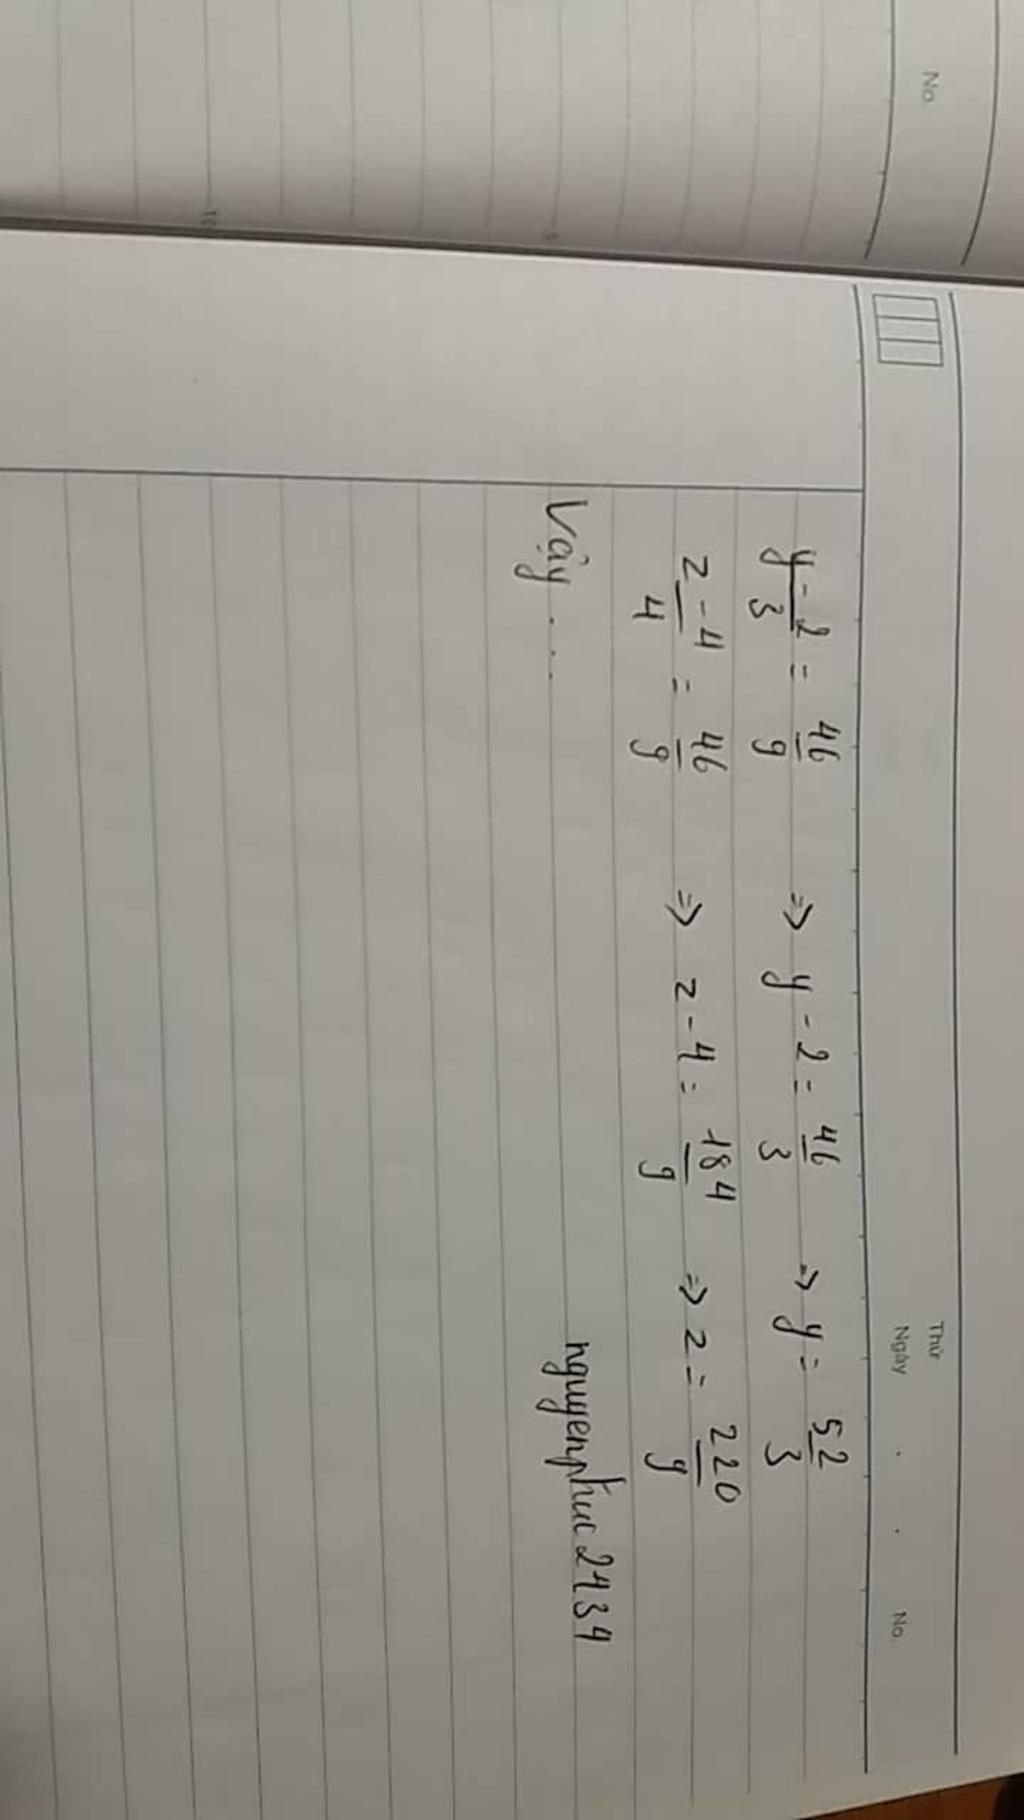 No.
Thứ
Ngày . . No.
y-2/3 = 46/9 => y-2 = 46/3 => y = 52/3
z-4/4 = 46/9 => z-4 = 184/9 => z = 220/9
Vậy ....
nguyenphuc2434